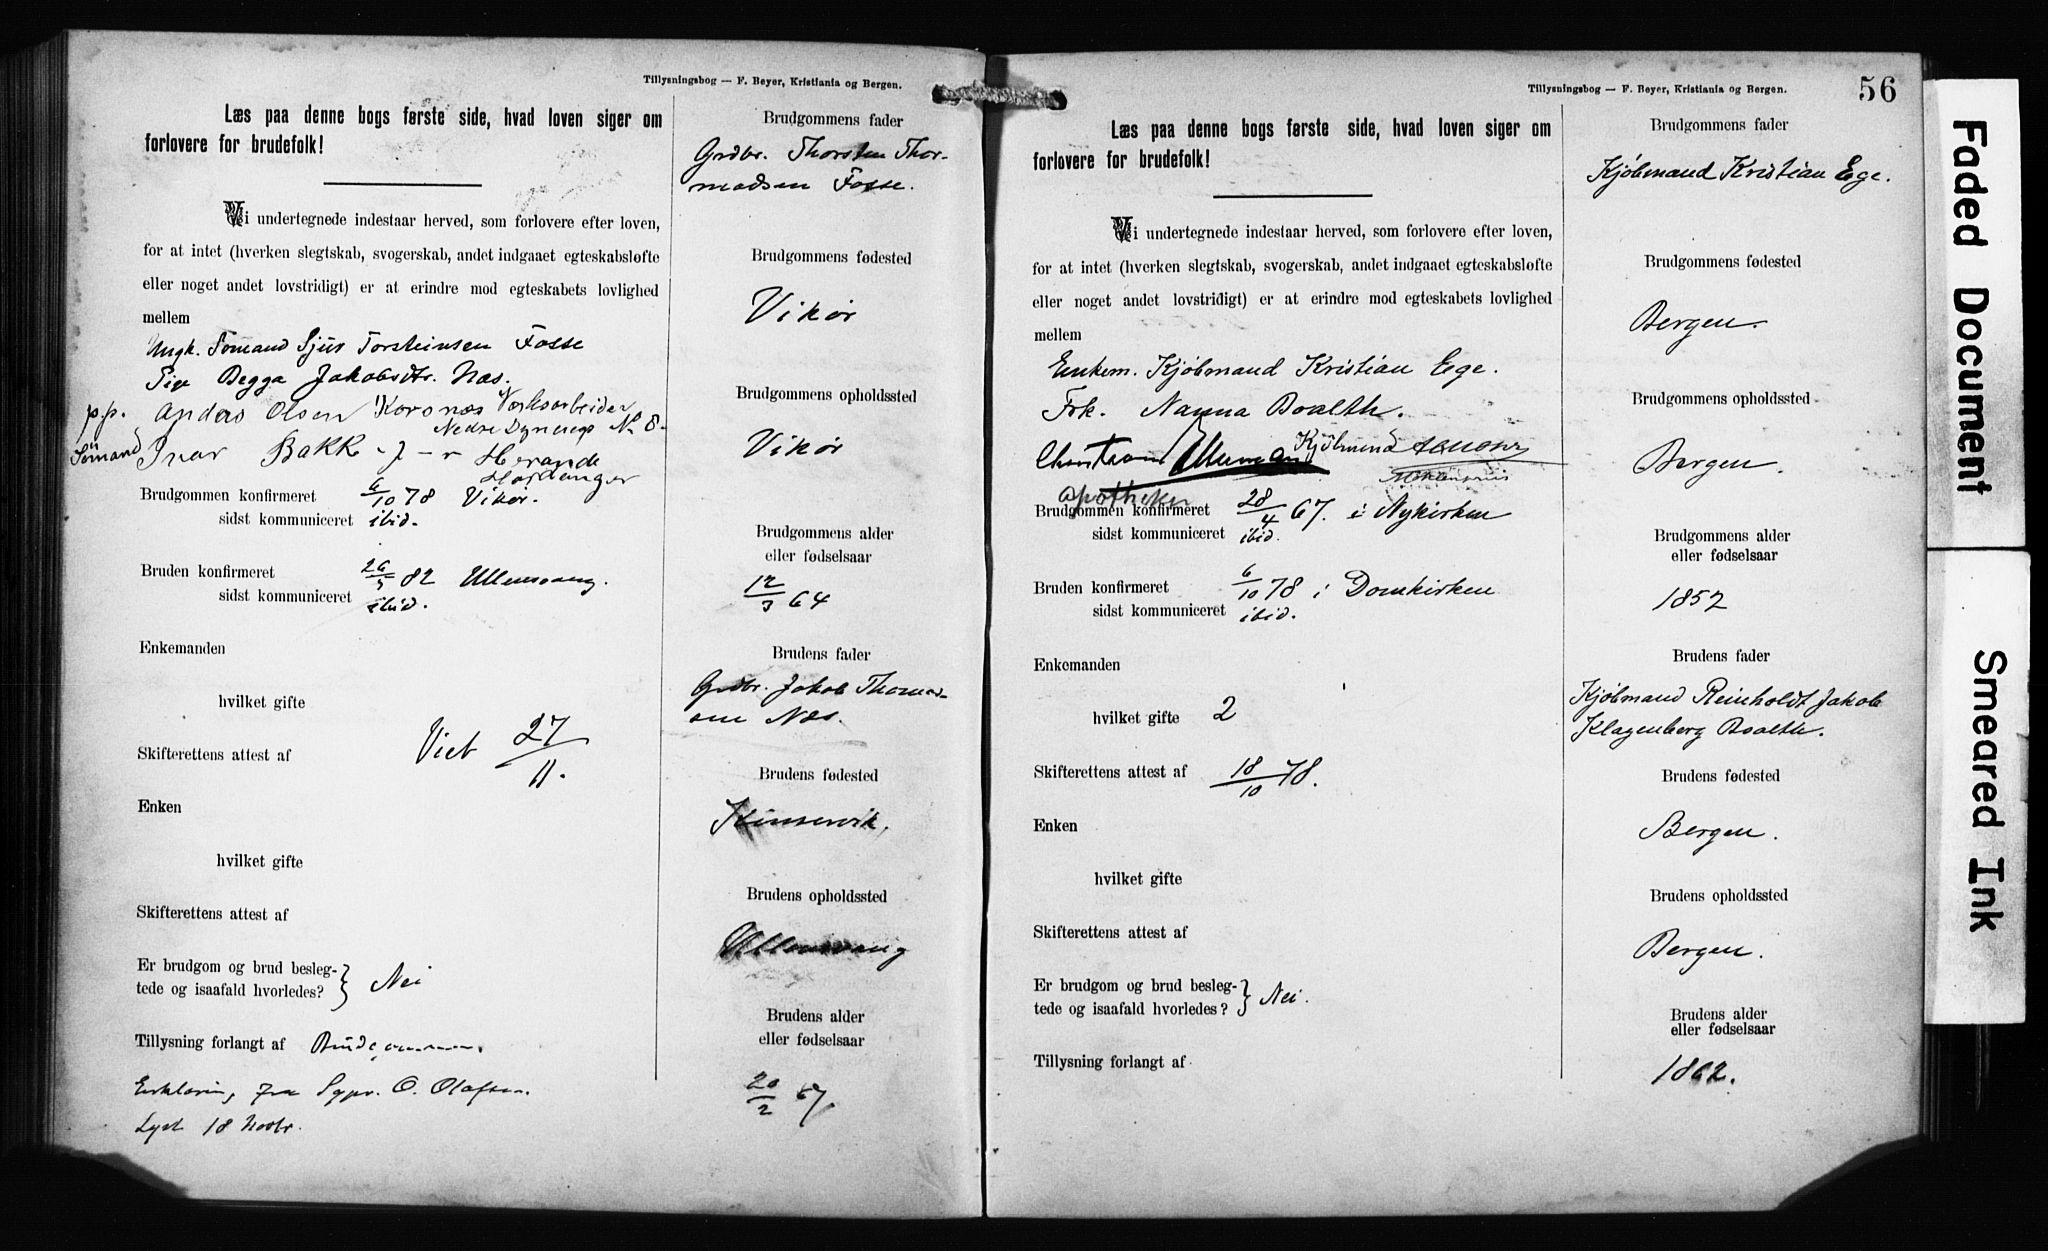 Tillysningsbog — F. Beyer, Kristiania og Bergen.
Læs paa denne bogs første side, hvad loven siger om
forlovere for brudefolk!
Vi undertegnede indestaar herved, som forlovere efter loven,
for at intet (hverken slegtskab, svogerskab, andet indgaaet egteskabsløfte
eller noget andet lovstridigt) er at erindre mod egteskabets lovlighed
mellem
Ungk. Sømand Sjur Torsteinsen Fosse
Pige Begga Jakobsdtr. Næs.
p.p. Anders Olsen Korsnæs Værksarbeider
Nedre No 8
Sømand Ivar Bakke Herande
Hardanger
Brudgommen konfirmeret 6/10 78 Vikør.
sidst kommuniceret ibid.
Bruden konfirmeret 82 Ullensvang.
sidst kommuniceret ibid.
Enkemanden
hvilket gifte
Viet 27/11.
Skifterettens attest af
Enken
hvilket gifte
Skifterettens attest af
Er brudgom og brud besleg-
tede og isaafald hvorledes? } Nei
Tillysning forlangt af Brudgommen.
Erklæring fra Sgpr. O. Olafsen.
Lyst 18 Novbr.
Brudgommens fader
Grdbr. Thorsten Thor-
modsen Fosse.
Brudgommens fødested
Vikør
Brudgommens opholdssted
Vikør
Brudgommens alder
eller fødselsaar
12/3 64
Brudens fader
Grdbr. Jakob Thomas-
sen Næs.
Brudens fødested
Kinservik.
Brudens opholdssted
Ullensvang
Brudens alder
eller fødselsaar
20/2 67
Tillysningsbog — F. Beyer, Kristiania og Bergen.
56
Læs paa denne bogs første side, hvad loven siger om
forlovere for brudefolk!
Vi undertegnede indestaar herved, som forlovere efter loven,
for at intet (hverken slegtskab, svogerskab, andet indgaaet egteskabsløfte
eller noget andet lovstridigt) er at erindre mod egteskabets lovlighed
mellem
Enkem. Kjøbmand Kristian Ege.
Frk. Nanna Boalth.
Kjøbmand
Apotheker
Brudgommen konfirmeret 28/4 67. i Nykirken
sidst kommuniceret ibid.
Bruden konfirmeret 6/10 78 i Domkirken
sidst kommuniceret ibid.
Enkemanden
hvilket gifte 2
Skifterettens attest af 18/10 78.
Enken
hvilket gifte
Skifterettens attest af
Er brudgom og brud besleg-
tede og isaafald hvorledes? } Nei.
Tillysning forlangt af
Brudgommens fader
Kjøbmand Kristian Ege.
Brudgommens fødested
Bergen.
Brudgommens opholdssted
Bergen.
Brudgommens alder
eller fødselsaar
1852
Brudens fader
Kjøbmand Reinholdt Jakob
Klagenberg Boalth.
Brudens fødested
Bergen.
Brudens opholdssted
Bergen.
Brudens alder
eller fødselsaar
1862.
Faded Document
Smeared Ink